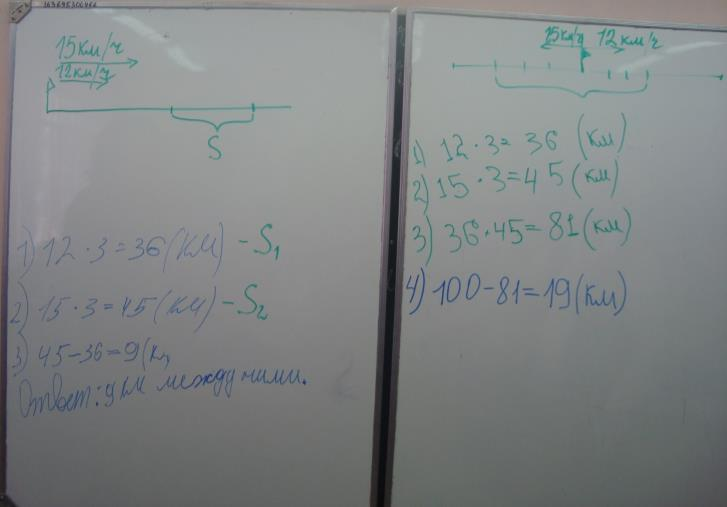 15км/ч
12км/ч
S
1) 12·3=36(км) - S1
2) 15·3=45(км) - S2
3) 45-36=9(к
Ответ: 9км между ними.
15км/ч 12км/ч
1) 12·3=36 (км)
2) 15·3=45(км)
3) 36·45=81(км)
4) 100-81=19(км)